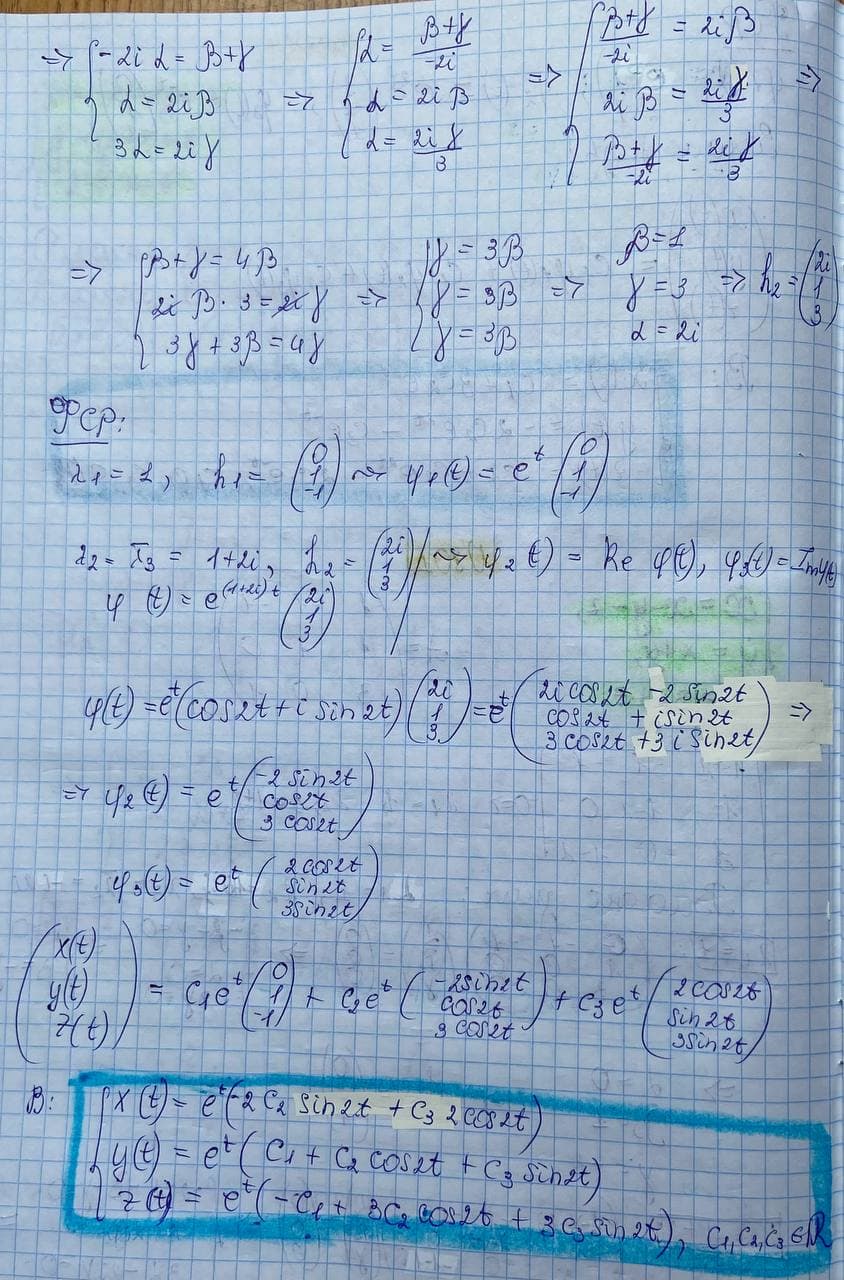 => { -2i α = β+γ ; α = 2iβ ; 3α = 2iγ => { α = (β+γ)/(-2i) ; α = 2iβ ; α = 2iγ/3 => { (β+γ)/(-2i) = 2iβ ; 2iβ = 2iγ/3 ; (β+γ)/(-2i) = 2iγ/3 =>
=> { β+γ = 4β ; 2iβ·3 = 2iγ ; 3γ+3β = 4γ => { γ = 3β ; γ = 3β ; γ = 3β => β=1 ; γ = 3 ; α = 2i => h₂ = (2i 1 3)
ФСР:
λ₁ = 1, h₁ = (0 1 -1) ~> φ₁(t) = e^t (0 1 -1)
λ₂ = λ̄₃ = 1+2i, h₂ = (2i 1 3) / ~> φ₂(t) = Re φ(t), φ₃(t) = Im φ(t)
φ(t) = e^(1+2i)t (2i 1 3)
φ(t) = e^t (cos2t + i sin2t) (2i 1 3) = e^t (2i cos2t - 2 sin2t ; cos2t + i sin2t ; 3 cos2t + 3 i sin2t) =>
=> φ₂(t) = e^t (-2 sin2t ; cos2t ; 3 cos2t)
φ₃(t) = e^t (2cos2t ; sin2t ; 3sin2t)
(x(t) ; y(t) ; z(t)) = C₁e^t (0 1 -1) + C₂e^t (-2sin2t ; cos2t ; 3 cos2t) + C₃e^t (2cos2t ; sin2t ; 3sin2t)
В: { x(t) = e^t(-2C₂ sin2t + C₃ 2cos2t)
y(t) = e^t(C₁ + C₂ cos2t + C₃ sin2t)
z(t) = e^t(-C₁ + 3C₂ cos2t + 3C₃ sin2t), C₁,C₂,C₃ ∈ ℝ